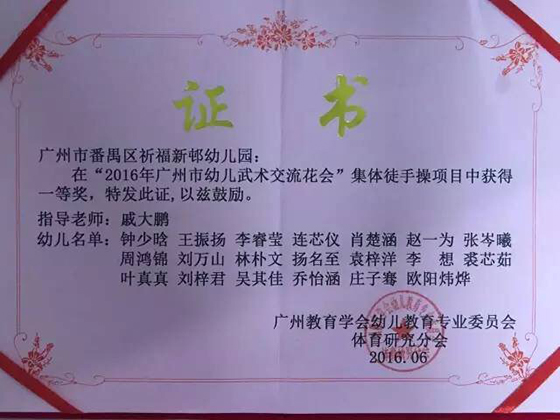 证 书
广州市番禺区祈福新邨幼儿园：
在“2016年广州市幼儿武术交流花会”集体徒手操项目中获得
一等奖，特发此证,以兹鼓励。
指导老师：戚大鹏
幼儿名单：钟少晗 王振扬 李睿莹 连芯仪 肖楚涵 赵一为 张岑曦
周鸿锦 刘万山 林朴文 扬名至 袁梓洋 李 想 裘芯茹
叶真真 刘梓君 吴其佳 乔怡涵 庄子骞 欧阳炜烨
广州教育学会幼儿教育专业委员会
体育研究分会
2016.06